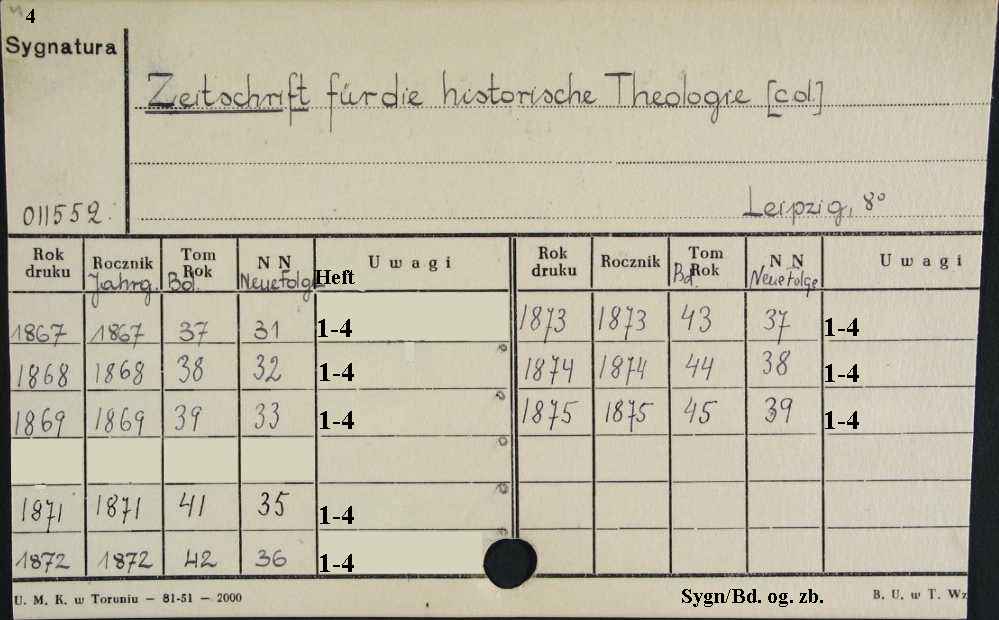 4
Sygnatura
Zeitschrift für die historische Theologie [cd.]
Leipzig, 8°
011552.
Rok druku Rocznik Jahrg. Tom Rok Bd. N N Neue Folge Heft Uwagi Rok druku Rocznik Tom Rok Bd. N N Neue Folge Uwagi
1867 1867 37 31 1-4 1873 1873 43 37 1-4
1868 1868 38 32 1-4 1874 1874 44 38 1-4
1869 1869 39 33 1-4 1875 1875 45 39 1-4
1871 1871 41 35 1-4
1872 1872 42 36 1-4
U. M. K. w Toruniu — 81-51 — 2000 Sygn/Bd. og. zb. B. U. w T. Wz